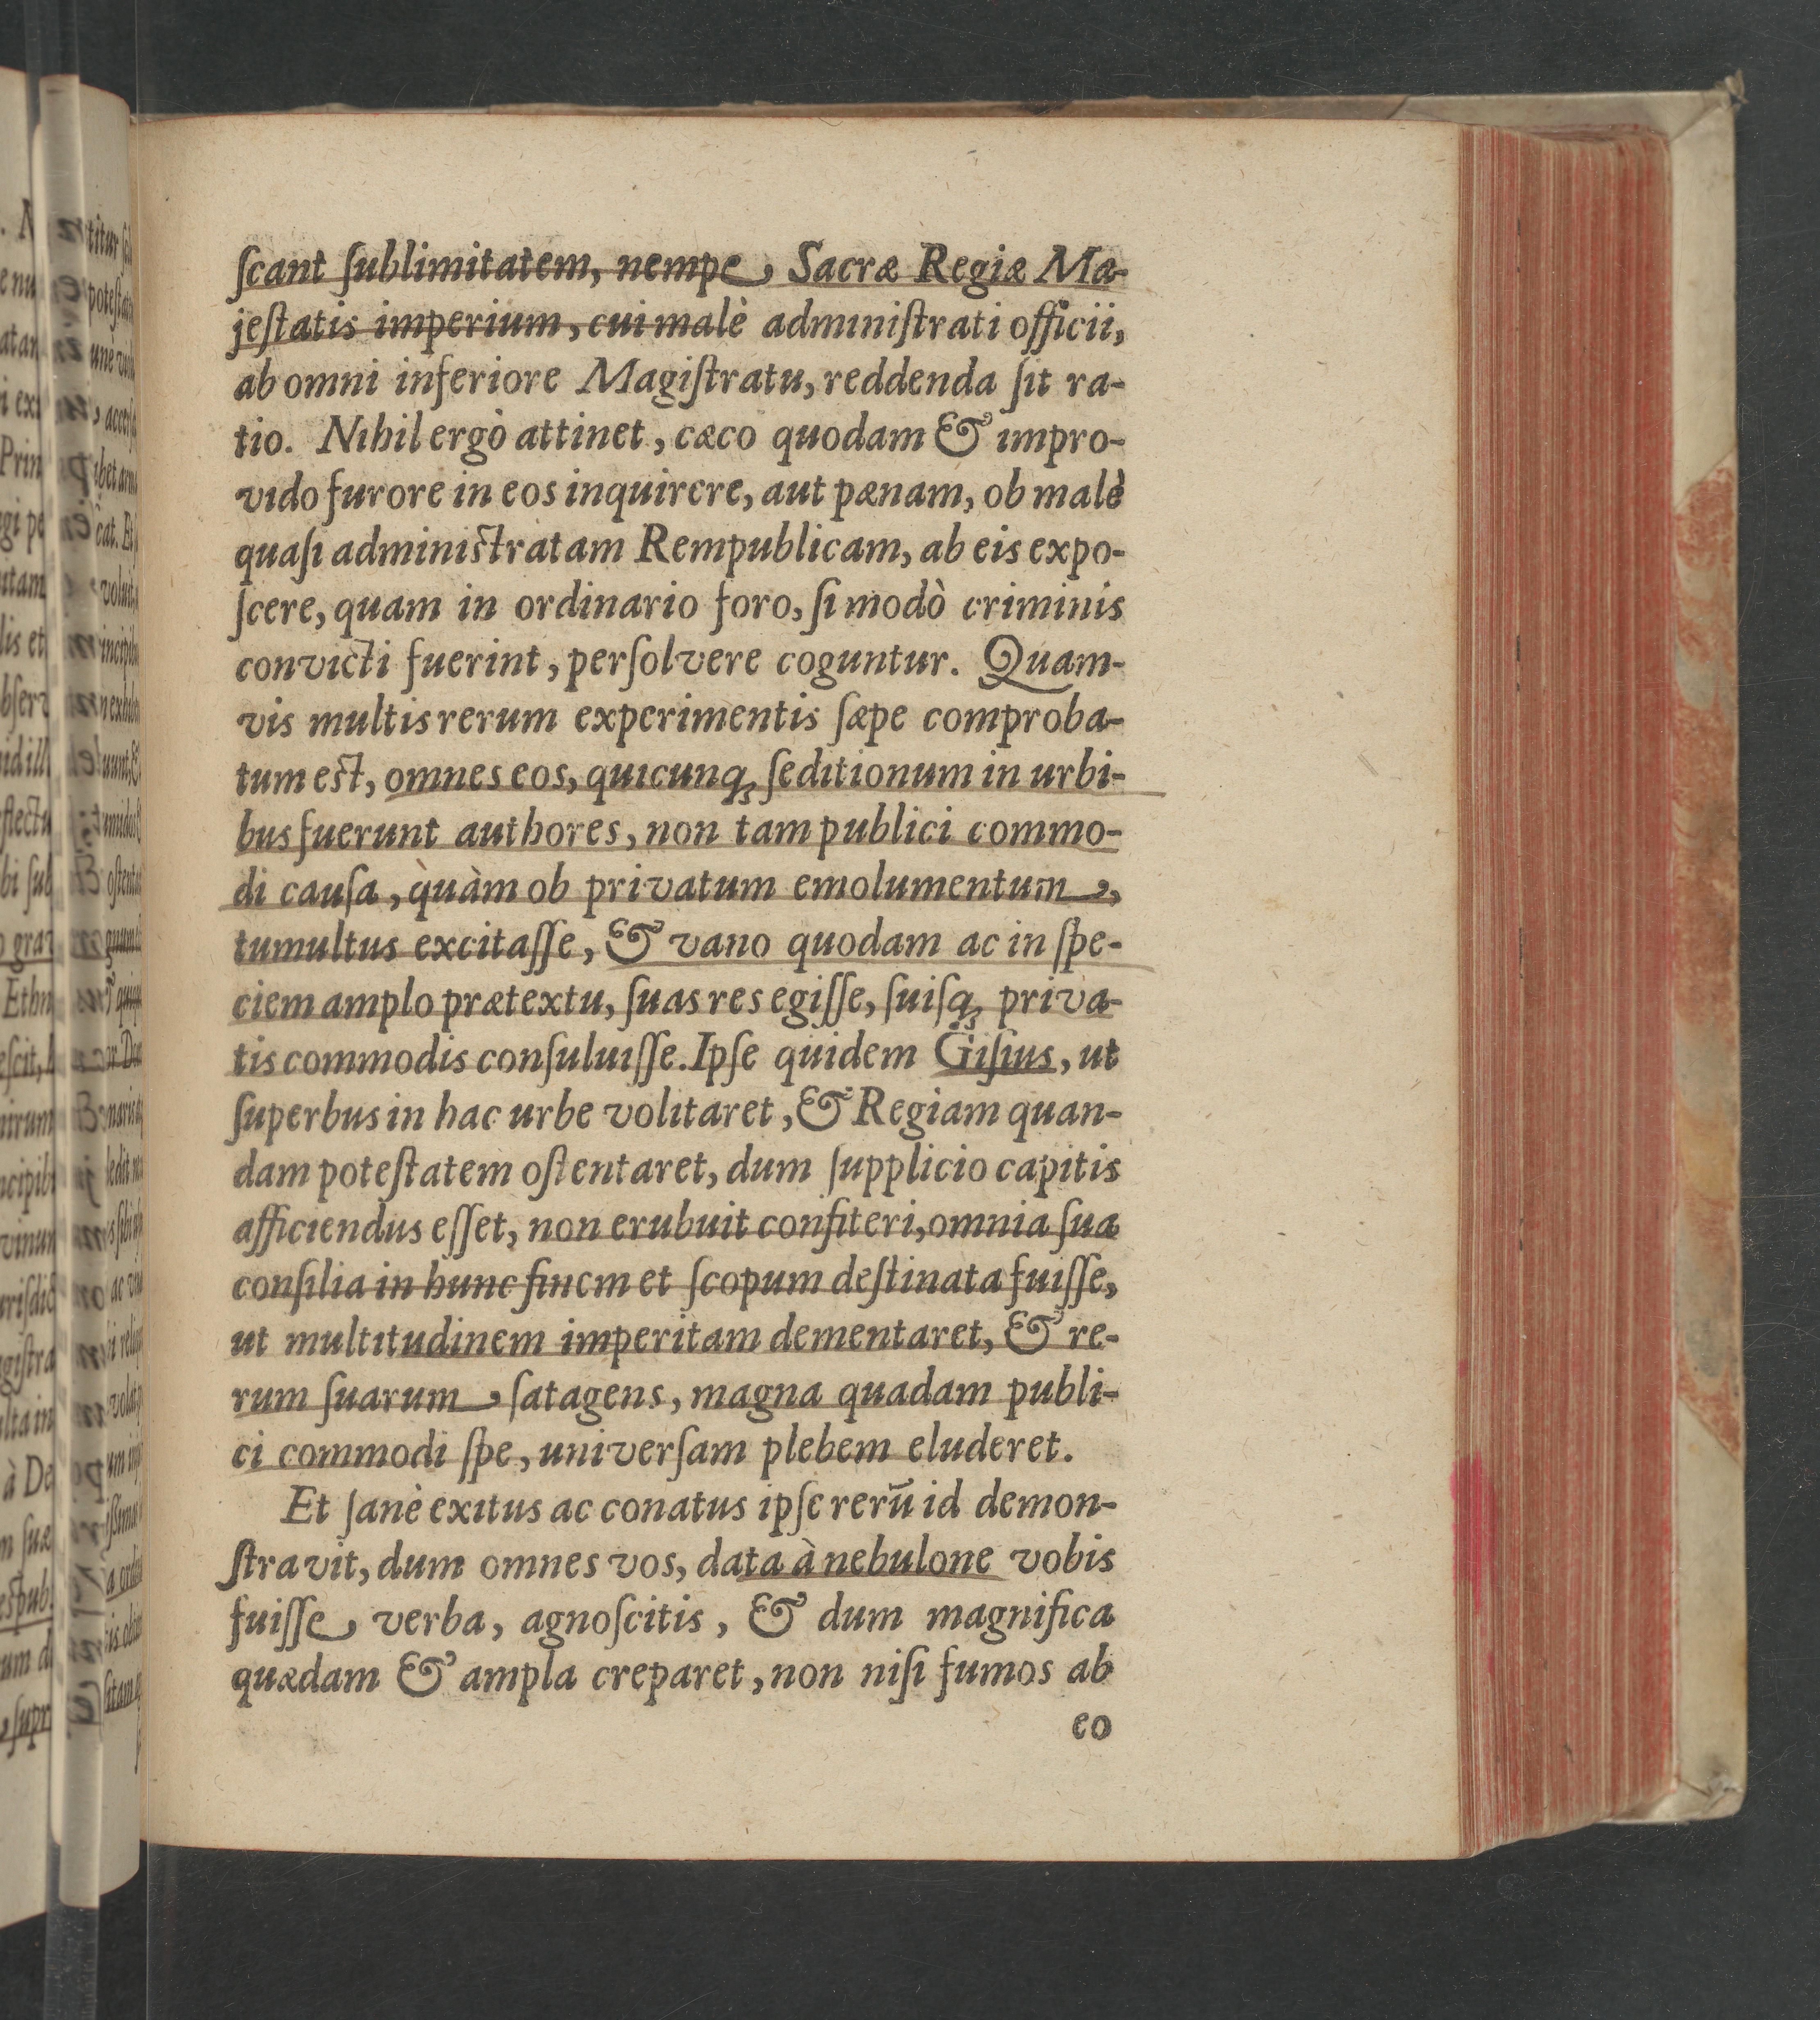 ſcant ſublimitatem, nempe, Sacræ Regiæ Ma-
jeſtatis imperium, cui malè adminiſtrati officii,
ab omni inferiore Magiſtratu, reddenda ſit ra-
tio. Nihil ergò attinet, cæco quodam & impro-
vido furore in eos inquirere, aut pænam, ob malè
quaſi adminiſtratam Rempublicam, ab eis expo-
ſcere, quam in ordinario foro, ſi modò criminis
convicti fuerint, perſolvere coguntur. Quam-
vis multis rerum experimentis ſæpe comproba-
tum eſt, omnes eos, quicunq; ſeditionum in urbi-
bus fuerunt authores, non tam publici commo-
di cauſa, quàm ob privatum emolumentum,
tumultus excitaſſe, & vano quodam ac in ſpe-
ciem amplo prætextu, ſuas res egiſſe, ſuiſq; priva-
tis commodis conſuluiſſe. Ipſe quidem Giſius, ut
ſuperbus in hac urbe volitaret, & Regiam quan-
dam poteſtatem oſtentaret, dum ſupplicio capitis
afficiendus eſſet, non erubuit confiteri, omnia ſua
conſilia in hunc finem et ſcopum deſtinata fuiſſe,
ut multitudinem imperitam dementaret, & re-
rum ſuarum ſatagens, magna quadam publi-
ci commodi ſpe, univerſam plebem eluderet.
Et ſanè exitus ac conatus ipſe rerū id demon-
ſtravit, dum omnes vos, data à nebulone vobis
fuiſſe verba, agnoſcitis, & dum magnifica
quædam & ampla creparet, non niſi fumos ab
eo